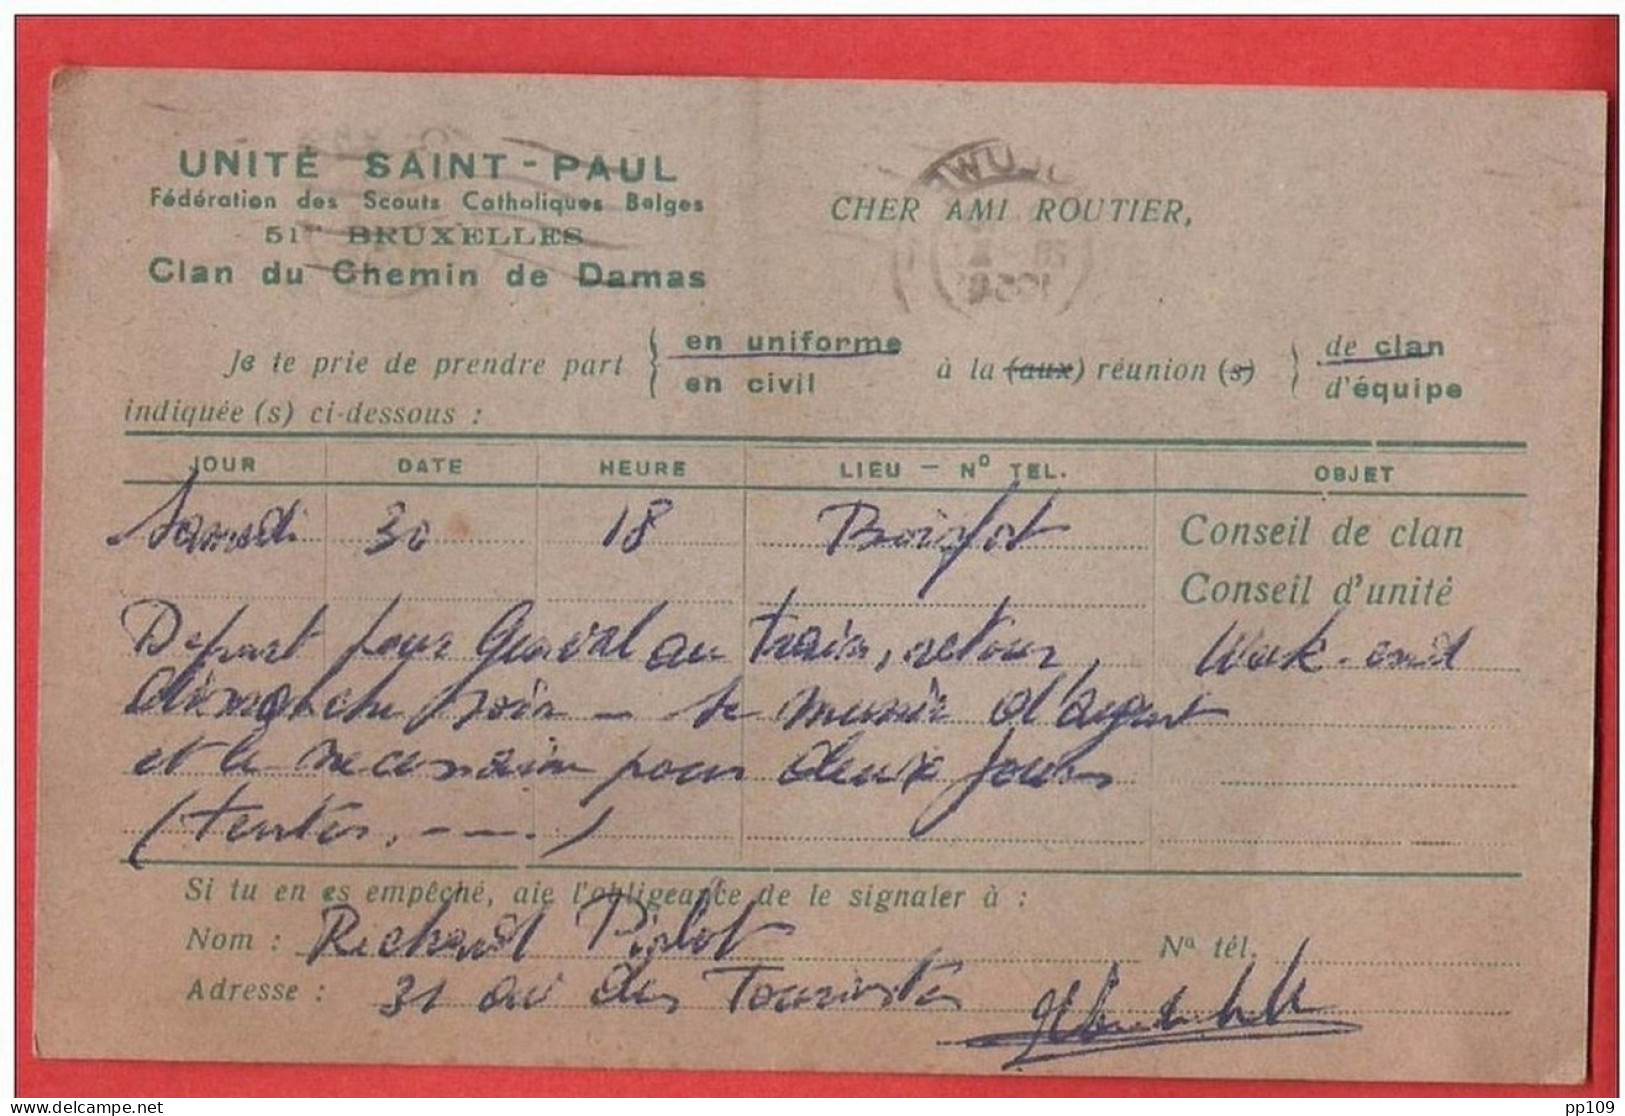 UNITÉ SAINT-PAUL
Fédération des Scouts Catholiques Belges
51e BRUXELLES
Clan du Chemin de Damas
CHER AMI ROUTIER,
Je te prie de prendre part { en uniforme en civil à la (aux) réunion (s) } de clan d'équipe
indiquée (s) ci-dessous :
JOUR DATE HEURE LIEU - No TEL. OBJET
Samedi 30 18 Boisfot Conseil de clan
Conseil d'unité
Depart pour Genval au train, retour, Week-end
dimanche soir - se munir d'argent
et le necessaire pour deux jours
(tentes, - - -. )
Si tu en es empêché, aie l'obligeance de le signaler à :
Nom : Richard Piplot No tél.
Adresse : 31 av des Touristes
pp109